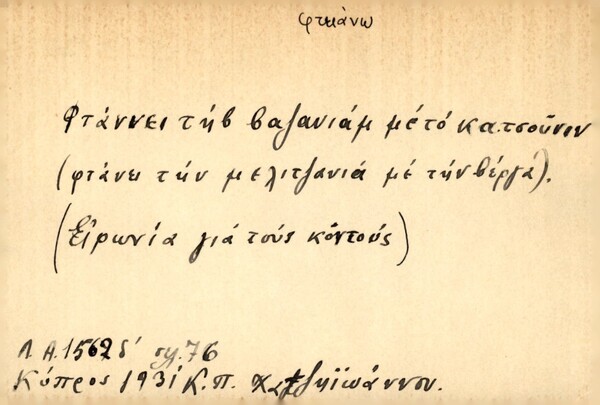 φτάνω
Φτάννει τήβ βαζανιάμ μέ τό κατσούνιν
(φτάνει τήν μελιτζανιά μέ τήν βέργα).
(Εἰρωνία γιά τούς κοντούς)
Λ.Α. 1562 δ' σελ. 76
Κύπρος 1931 Κ.Π. Χατζηϊωάννου.